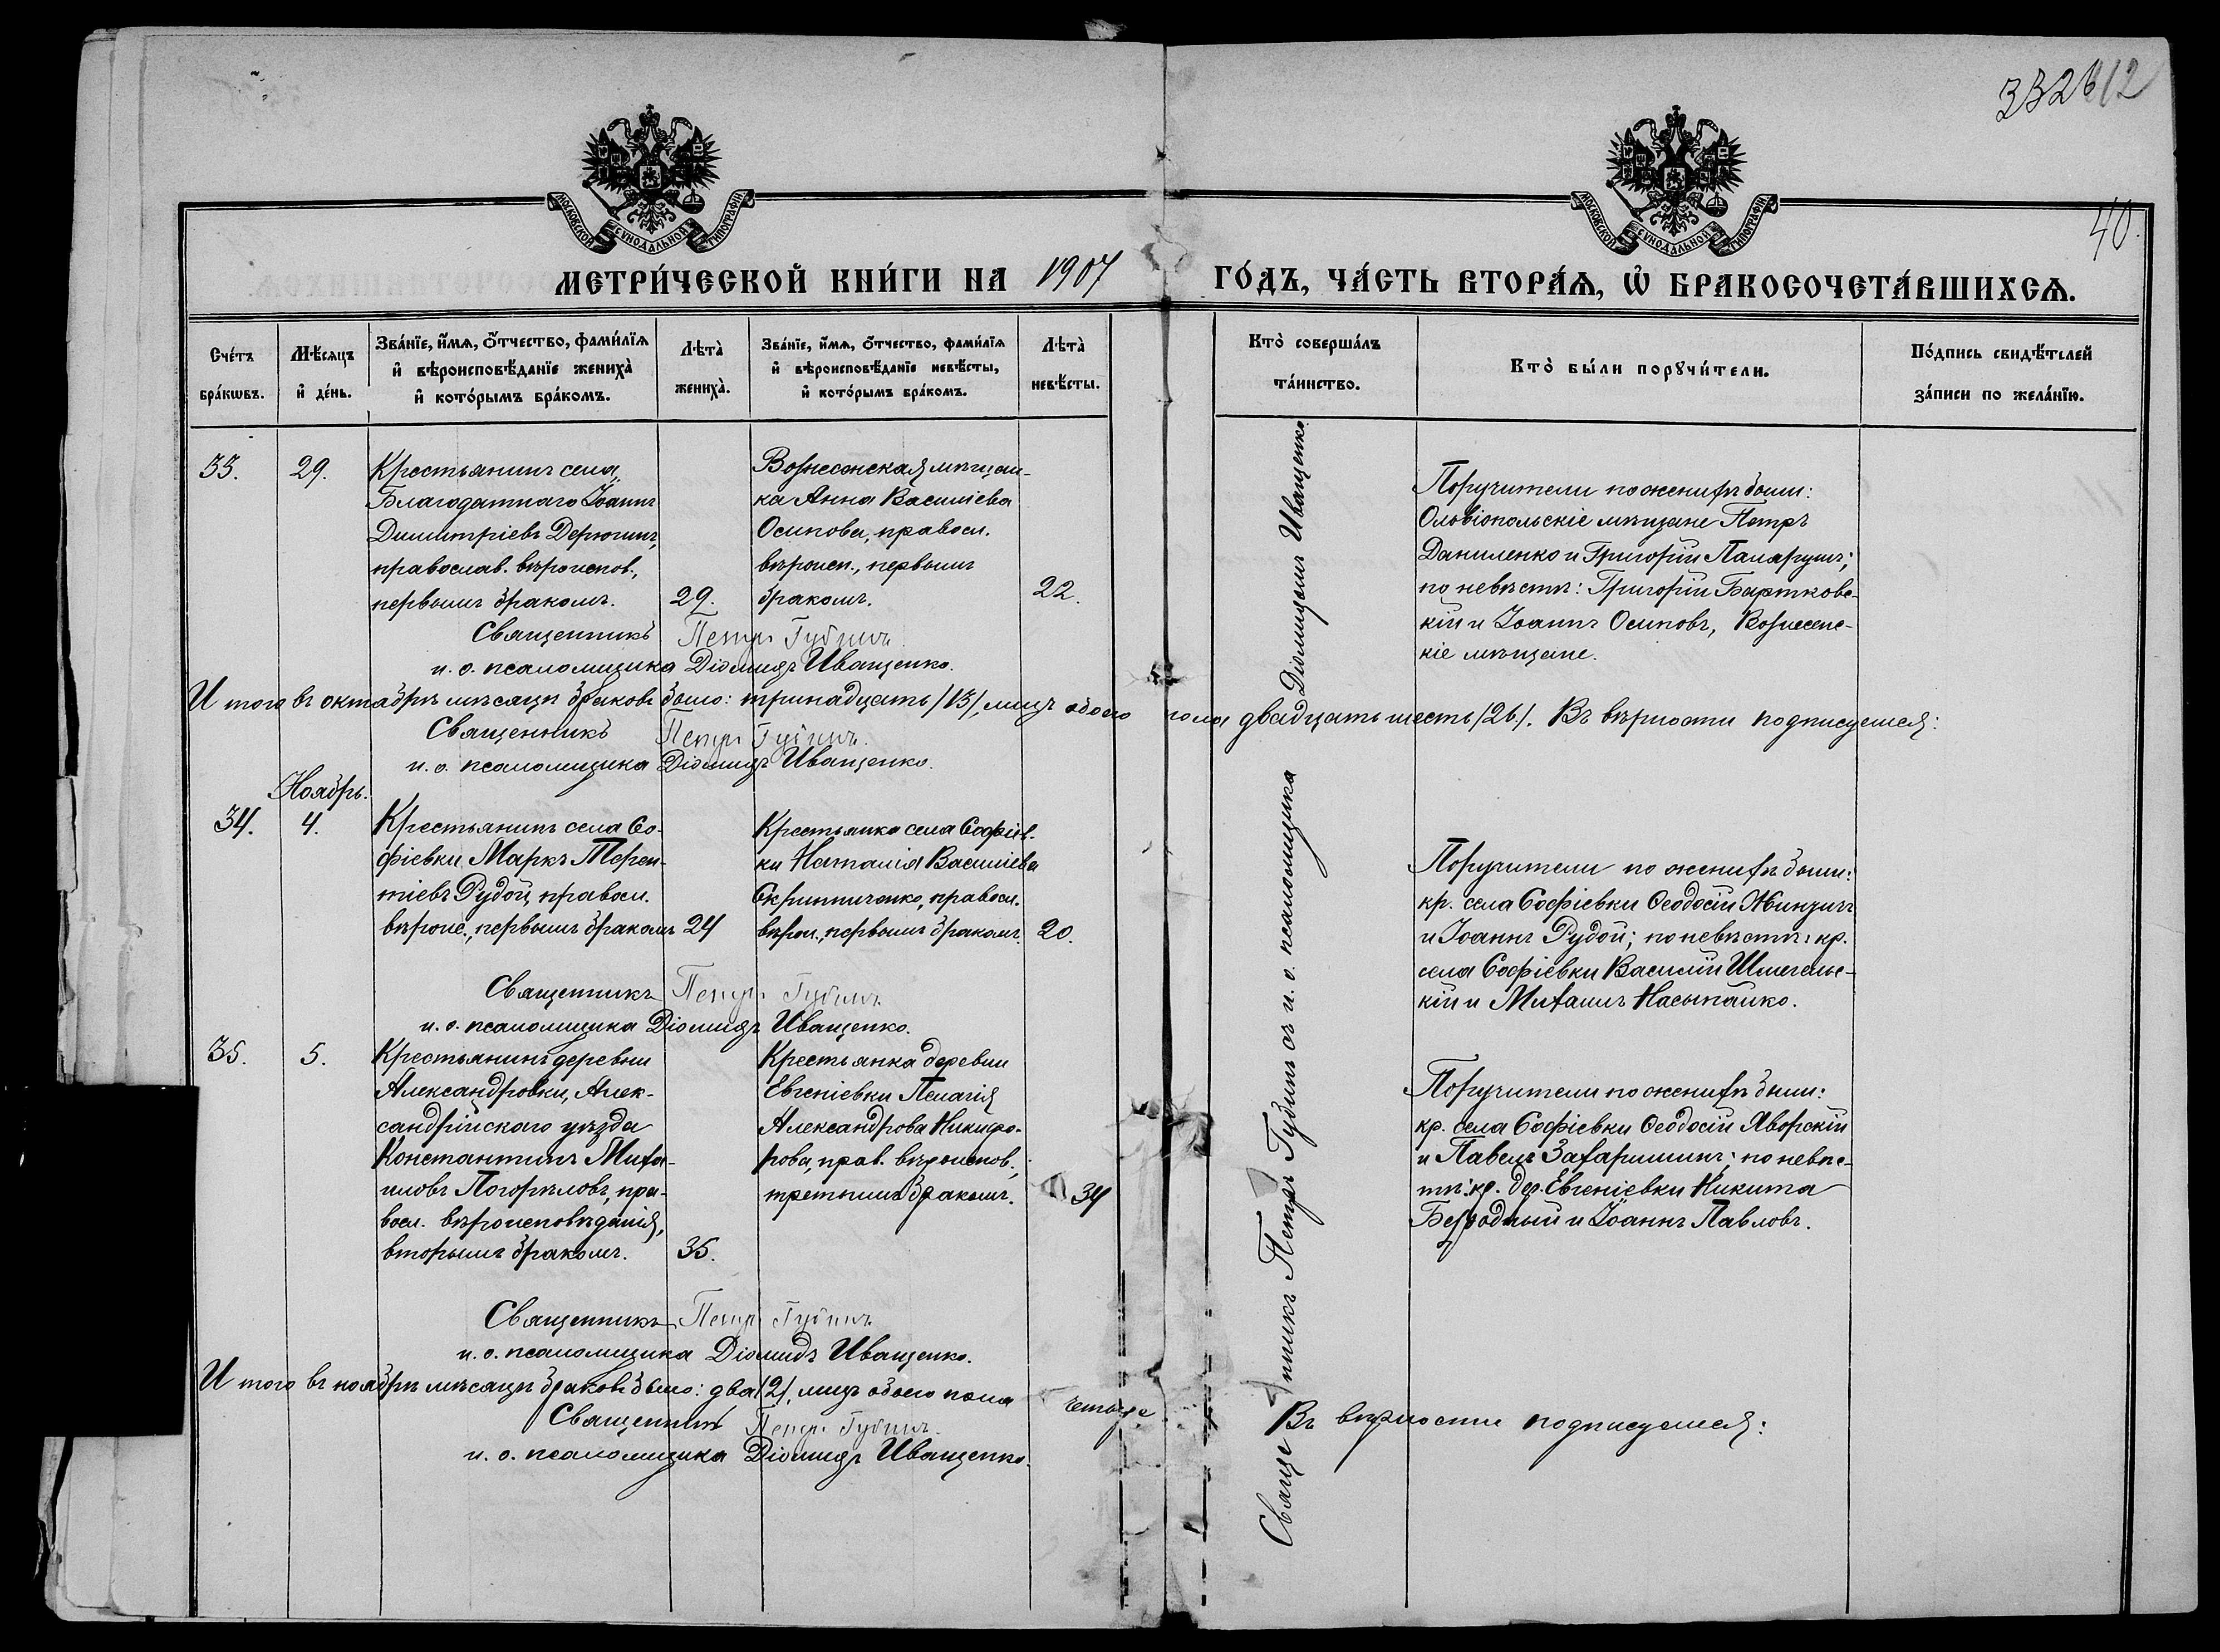 332612
40.
МОСКОВСКОЙ СѴНОДАЛЬНОЙ ТИПОГРАФІИ
МОСКОВСКОЙ СѴНОДАЛЬНОЙ ТИПОГРАФІИ
МЕТРИ́ЧЕСКОЙ КНИ́ГИ НА 1907 ГО́ДЪ, ЧА́СТЬ ВТОРА́Ѧ, Ѽ БРАКОСОЧЕТА́ВШИХСѦ.
Сче́тъ бра́кѡвъ.
Мѣ́сяцъ и҆ де́нь.
Зва́нїе, и҆́мѧ, ѻ҆́тчество, фами́лїѧ
и҆ вѣроисповѣ́данїе жениха̀
и҆ кото́рымъ бра́комъ.
Лѣта̀ жениха̀.
Зва́нїе, и҆́мѧ, ѻ҆́тчество, фами́лїѧ
и҆ вѣроисповѣ́данїе невѣ́сты,
и҆ кото́рымъ бра́комъ.
Лѣта̀ невѣ́сты.
Кто̀ соверша́лъ та́инство.
Кто̀ бы́ли порꙋчи́тели.
По́дпись свидѣ́телей за́писи по жела́нїю.
33.
29.
Крестьянинъ села
Благодатнаго Іоаннъ
Димитріевъ Дерюгинъ,
православ. вѣроиспов.,
первымъ бракомъ.
29.
Вознесенская мѣщан-
ка Анна Василіева
Осипова, правосл.
вѣроисп., первымъ
бракомъ.
22.
Поручители по женихѣ были:
Ольвіопольскіе мѣщане Петръ
Даниленко и Григорій Паларунъ;
по невѣстѣ: Григорій Бартковс-
кій и Іоаннъ Осиповъ, Вознесенс-
кіе мѣщане.
Священникъ Петръ Губинъ
и. о. псаломщика Діомидъ Иващенко.
Итого въ октябрѣ мѣсяцѣ браковъ было: тринадцать /13/, лицъ обоего пола двадцать шесть /26/. Въ вѣрности подписуемся:
Священникъ Петръ Губинъ.
и. о. псаломщика Діомидъ Иващенко.
Ноябрь.
34.
4.
Крестьянинъ села Со-
фіевки Маркъ Терен-
тіевъ Рудой, правосл.
вѣроис., первымъ бракомъ
24
Крестьянка села Софіев-
ки Наталія Василіева
Скрипниченко, правосл.
вѣрои., первымъ бракомъ.
20.
Поручители по женихѣ были:
кр. села Софіевки Ѳеодосій
и Іоаннъ Рудой; по невѣстѣ: кр.
села Софіевки Василій Шмегельс-
кій и Михаилъ Насыпайко.
Священникъ Петръ Губинъ
и. о. псаломщика Діомидъ Иващенко.
35.
5.
Крестьянинъ деревни
Александровки, Алек-
сандрійскаго уѣзда
Константинъ Миха-
иловъ Погорѣловъ, пра-
восл. вѣроисповѣданія,
вторымъ бракомъ.
35.
Крестьянка деревни
Евгеніевки Пелагія
Александрова Никифо-
рова, прав. вѣроиспов.,
третьимъ бракомъ.
34
Поручители по женихѣ были:
кр. села Софіевки Ѳеодосій Яворскій
и Павелъ Захаришинъ; по невѣс-
тѣ: кр. дер. Евгеніевки Никита
Безродный и Іоаннъ Павловъ.
Священникъ Петръ Губинъ
и. о. псаломщика Діомидъ Иващенко.
Итого въ ноябрѣ мѣсяцѣ браковъ было: два /2/, лицъ обоего пола четыре Въ вѣрности подписуемся:
Священникъ Петръ Губинъ.
и. о. псаломщика Діомидъ Иващенко.
Священникъ Петръ Губинъ съ и. о. псаломщика Діомидомъ Иващенко